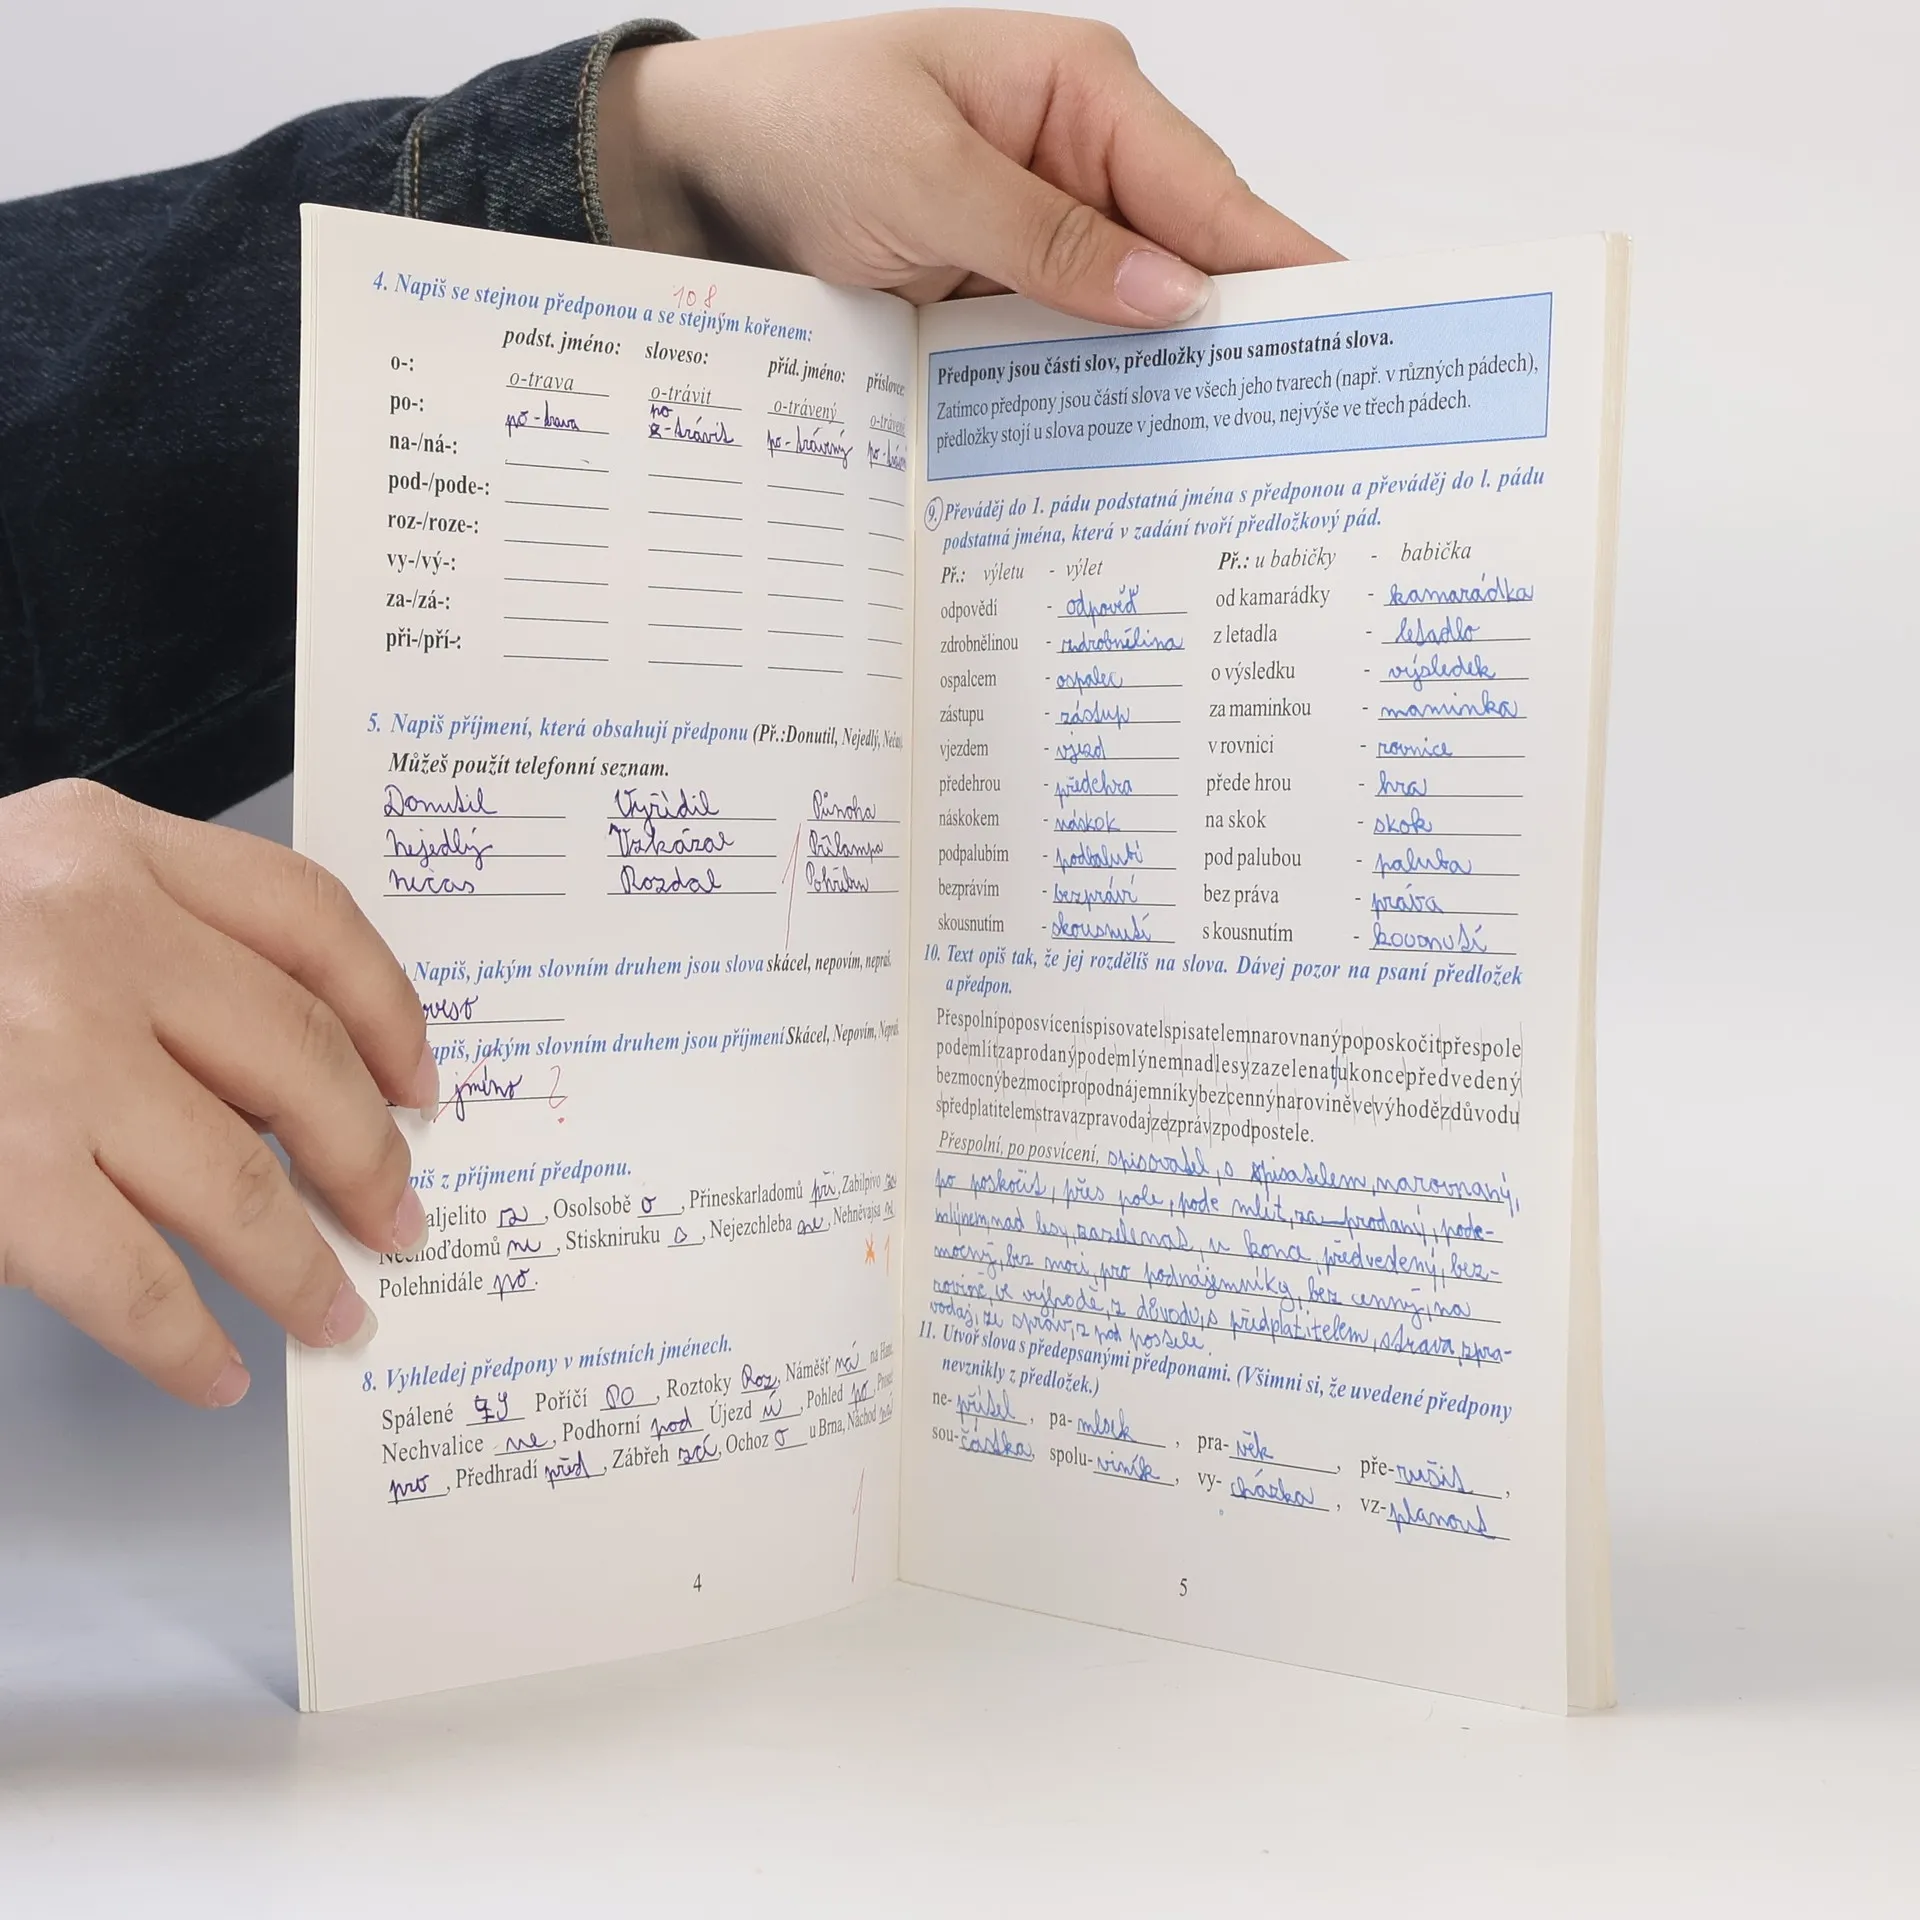 108
4. Napiš se stejnou předponou a se stejným kořenem:
podst. jméno: sloveso: příd. jméno: příslovce:
o-: o-trava o-trávit o-trávený
po-: po-trava po-trávit po-trávený
na-/ná-:
pod-/pode-:
roz-/roze-:
vy-/vý-:
za-/zá-:
při-/pří-:
5. Napiš příjmení, která obsahují předponu (Př.:Donutil, Nejedlý,
Můžeš použít telefonní seznam.
Donutil Vyřídil
Nejedlý Vzkázal
Nečas Rozdal
Napiš, jakým slovním druhem jsou slova skácel, nepovím,
jakým slovním druhem jsou příjmení Skácel, Nepovím,
jméno ?
z příjmení předponu.
Osolsobě o, Přineskarladomů při, Zabilpivo za
ne, Stiskniruku s, Nejezchleba ne, Nehněvajsa
Polehnidále po.
* 1
8. Vyhledej předpony v místních jménech.
Spálené Poříčí po, Roztoky Roz, Náměšť ná na
Nechvalice ne, Podhorní pod Újezd ú, Pohled po,
pro, Předhradí před, Zábřeh zá, Ochoz o u Brna, Náchod
4
Předpony jsou části slov, předložky jsou samostatná slova.
Zatímco předpony jsou částí slova ve všech jeho tvarech (např. v různých pádech),
předložky stojí u slova pouze v jednom, ve dvou, nejvýše ve třech pádech.
9. Převáděj do 1. pádu podstatná jména s předponou a převáděj do l. pádu
podstatná jména, která v zadání tvoří předložkový pád.
Př.: výletu - výlet Př.: u babičky - babička
odpovědí - odpověď od kamarádky - kamarádka
zdrobnělinou - zdrobnělina z letadla - letadlo
ospalcem - ospalec o výsledku - výsledek
zástupu - zástup za maminkou - maminka
vjezdem - vjezd v rovnici - rovnice
předehrou - předehra přede hrou - hra
náskokem - náskok na skok - skok
podpalubím - podpalubí pod palubou - paluba
bezprávím - bezpráví bez práva - práva
skousnutím - skousnutí s kousnutím - kousnutí
10. Text opiš tak, že jej rozdělíš na slova. Dávej pozor na psaní předložek
a předpon.
Přespolnípoposvíceníspisovatelspisatelemnarovnanýpoposkočitpřespole
podemlítzaprodanýpodemlýnemnadlesyzazelenatukoncepředvedený
bezmocnýbezmocipropodnájemníkybezcennýnaroviněvevýhodězdůvodu
spředplatitelemstravazpravodajzezprávzpodpostele.
Přespolní, po posvícení, spisovatel, s spisatelem, narovnaný,
po poskočit, přes pole, pode mlít, za prodaný, pode-
mlýnem, nad lesy, zazelenat, u konce, předvedený, bez-
mocný, bez moci, pro podnájemníky, bez cenný, na
rovině, ve výhodě, z důvodu, s předplatitelem, strava, zpra-
vodaj, ze zpráv, z pod postele.
11. Utvoř slova s předepsanými předponami. (Všimni si, že uvedené předpony
nevznikly z předložek.)
ne-přítel, pa-mlsek, pra-věk, pře-rušit,
sou-částka, spolu-viník, vy-cházka, vz-planout
5